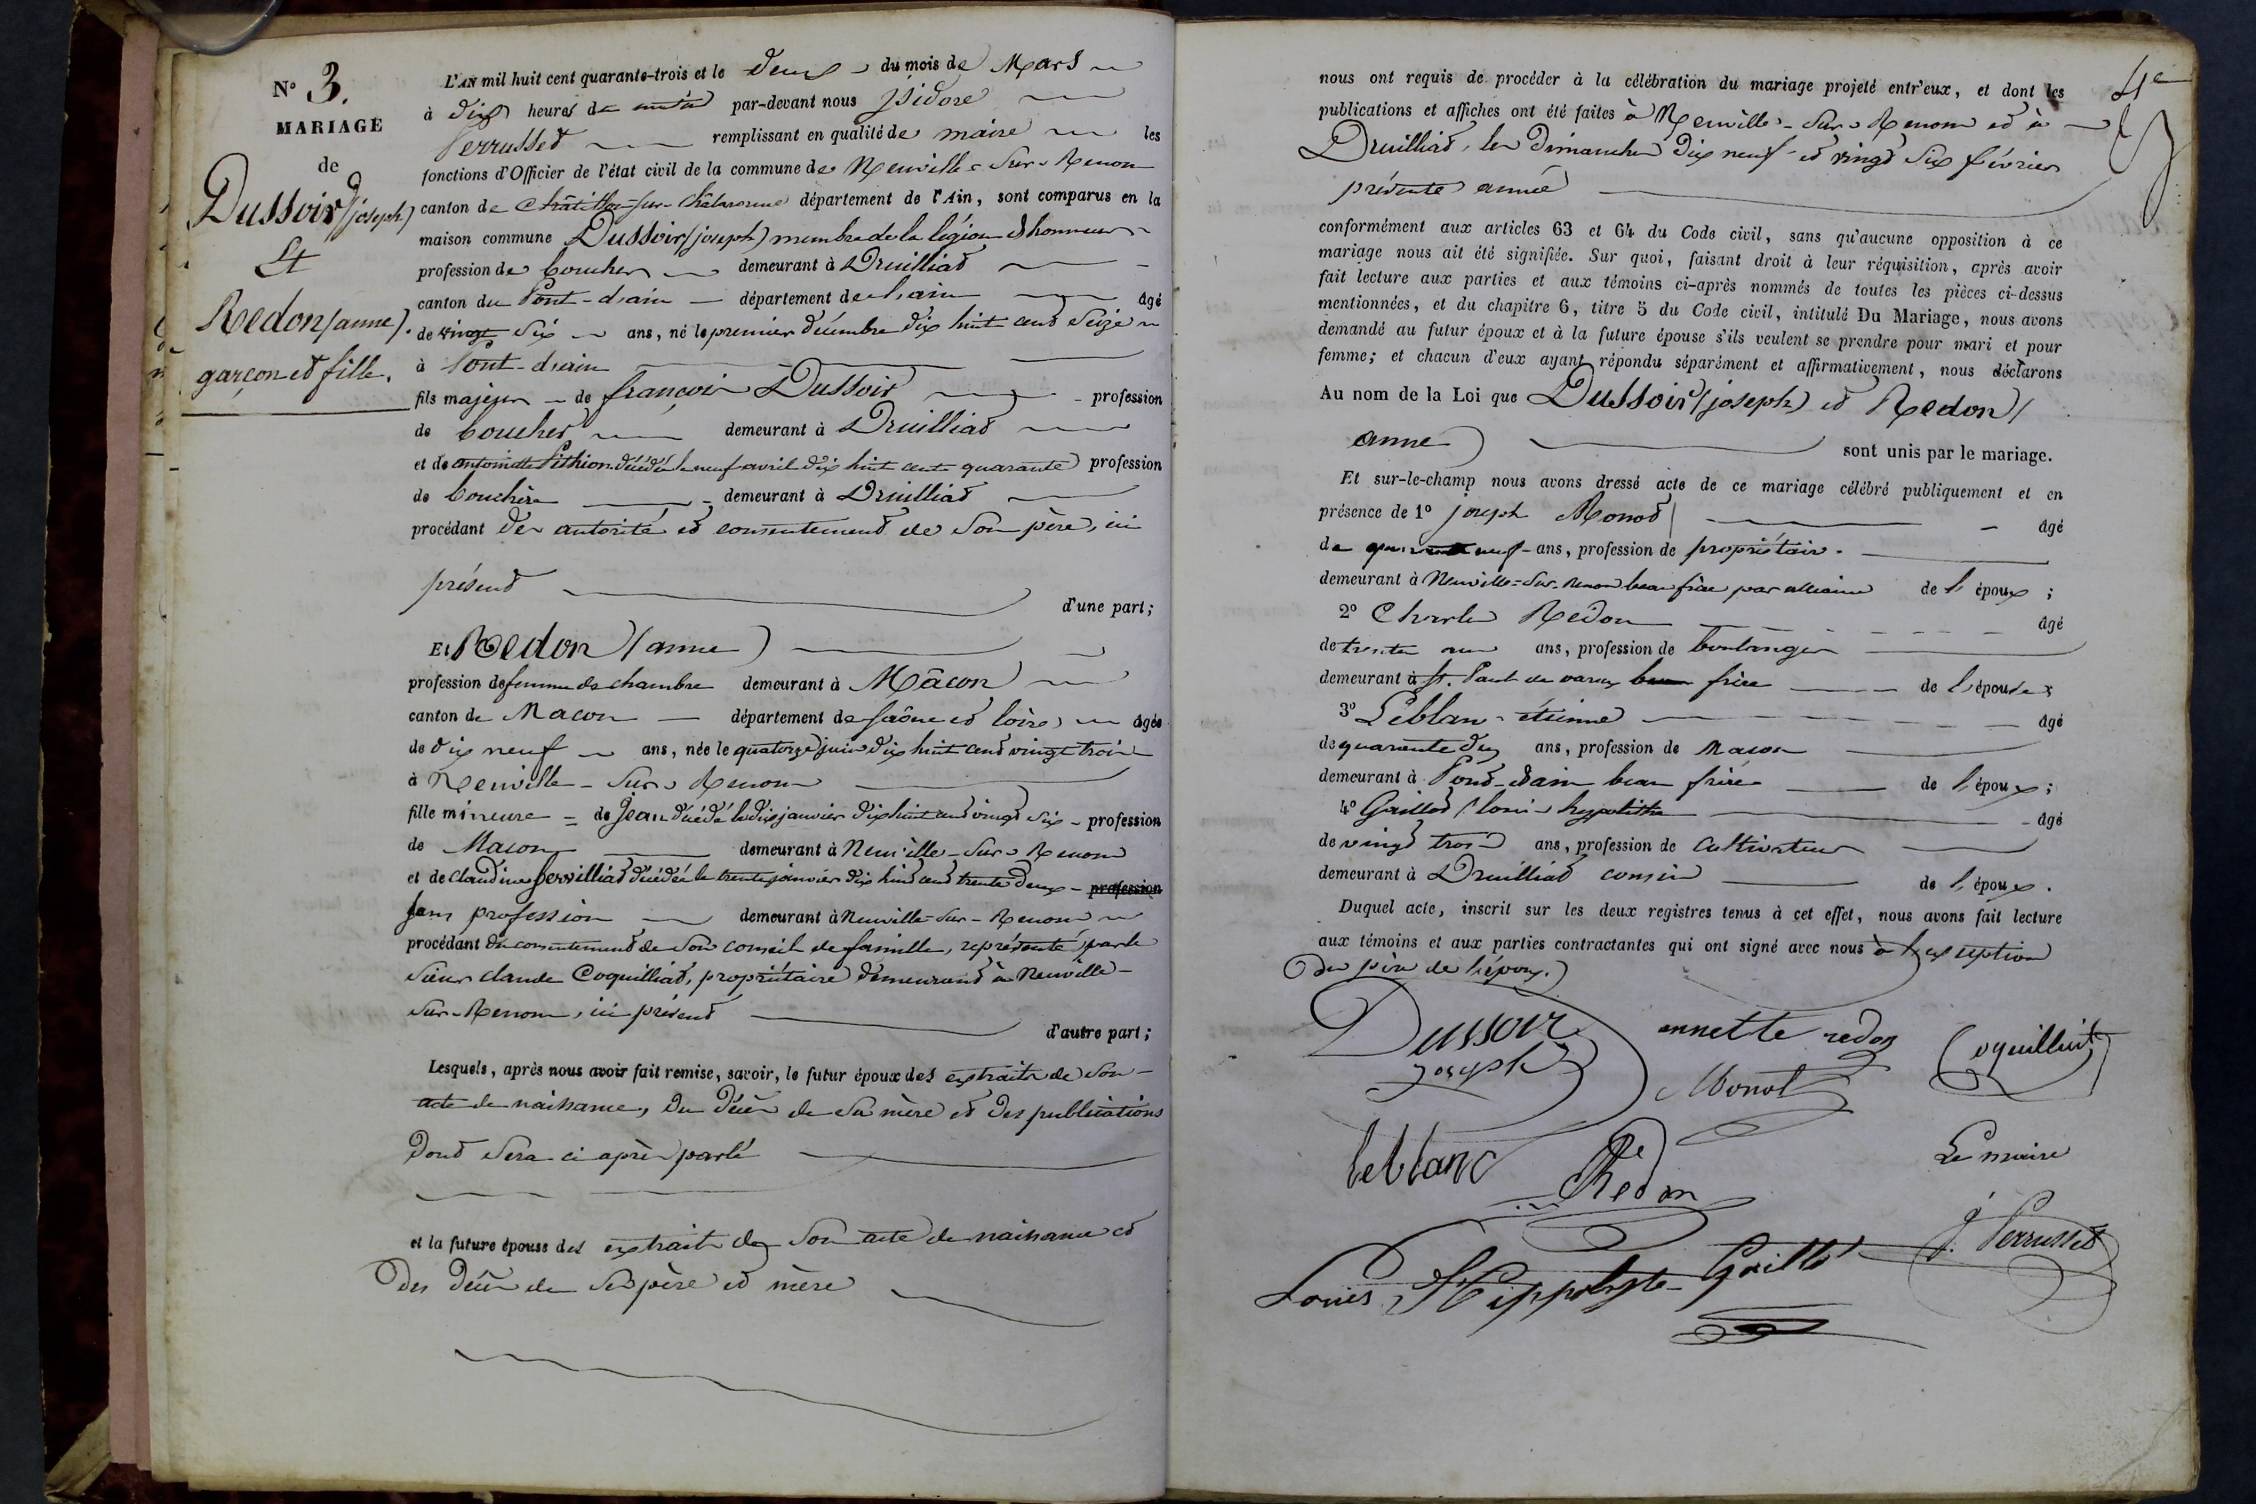 N° 3.
MARIAGE
de
Dussoir (joseph)
Et
Redon (anne).
garçon et fille.
L'AN mil huit cent quarante-trois et le deux du mois de Mars
à dix heures de matin par-devant nous Isidore
Perrusset remplissant en qualité de maire les
fonctions d'Officier de l'état civil de la commune de Neuville-Sur-Renom
canton de Châtillon-sur-Chalaronne département de l'Ain, sont comparus en la
maison commune Dussoir (joseph) membre de la légion d'honneur
profession de boucher demeurant à Druilliat
canton du Pont-d'ain département de l'ain âgé
de vingt six ans, né le premier décembre dix huit cent Seize
à Pont-d'ain
fils majeur de françois Dussoir profession
de boucher demeurant à Druilliat
et de antoinette Pithion décédée le neuf avril dix huit cent quarante profession
de bouchère demeurant à Druilliat
procédant de autorité et consentement de Son père, ici
présent
d'une part;
Et Redon (anne)
profession de femme de chambre demeurant à Mâcon
canton de Macon département de Saône et loire âgée
de dix neuf ans, née le quatorze juin dix huit cent vingt trois
à Neuville-Sur-Renom
fille mineure de Jean décédé le dix janvier dix huit cent vingt Six profession
de Macon demeurant à Neuville-Sur-Renom
et de claudine Servilliat décédée le trente janvier dix huit cent trente deux profession
Sans profession demeurant à Neuville-Sur-Renom
procédant du consentement de Son conseil de famille, représenté par le
Sieur claude Coquilliat, propriétaire demeurant à Neuville-
Sur-Renom, ici présent
d'autre part;
Lesquels, après nous avoir fait remise, savoir, le futur époux des extraits de Son
acte de naissance, du décès de Sa mère et des publications
dont Sera ci après parlé
et la future épouse des extraits de Son acte de naissance et
des décès de Ses père et mère
4e
nous ont requis de procéder à la célébration du mariage projeté entr'eux, et dont les
publications et affiches ont été faites à Neuville-Sur-Renom et à
Druilliat, les dimanches dix neuf et vingt Six février
présente année
conformément aux articles 63 et 64 du Code civil, sans qu'aucune opposition à ce
mariage nous ait été signifiée. Sur quoi, faisant droit à leur réquisition, après avoir
fait lecture aux parties et aux témoins ci-après nommés de toutes les pièces ci-dessus
mentionnées, et du chapitre 6, titre 5 du Code civil, intitulé Du Mariage, nous avons
demandé au futur époux et à la future épouse s'ils veulent se prendre pour mari et pour
femme; et chacun d'eux ayant répondu séparément et affirmativement, nous déclarons
Au nom de la Loi que Dussoir (joseph) et Redon (
anne)
sont unis par le mariage.
Et sur-le-champ nous avons dressé acte de ce mariage célébré publiquement et en
présence de 1° joseph Monod âgé
de neuf ans, profession de propriétaire.
demeurant à Neuville-Sur-Renom beau frère par alliance de l'époux;
2° Charles Redon âgé
de trente ans, profession de boulanger
demeurant à St. Paul de varax frère de l'épouse;
3° Leblanc étienne âgé
de quarante dix ans, profession de Macon
demeurant à Pont-d'ain beau frère de l'époux;
4° Gaillod (louis hyppolithe âgé
de vingt trois ans, profession de Cultivateur
demeurant à Druilliat cousin de l'époux.
Duquel acte, inscrit sur les deux registres tenus à cet effet, nous avons fait lecture
aux témoins et aux parties contractantes qui ont signé avec nous à l'exception
du père de l'époux.
Dussoir
joseph
annette redon
Coquilliat
Monot
leblanc
Redon
Le maire
J. Perrusset
Louis Hippolyte Gaillo